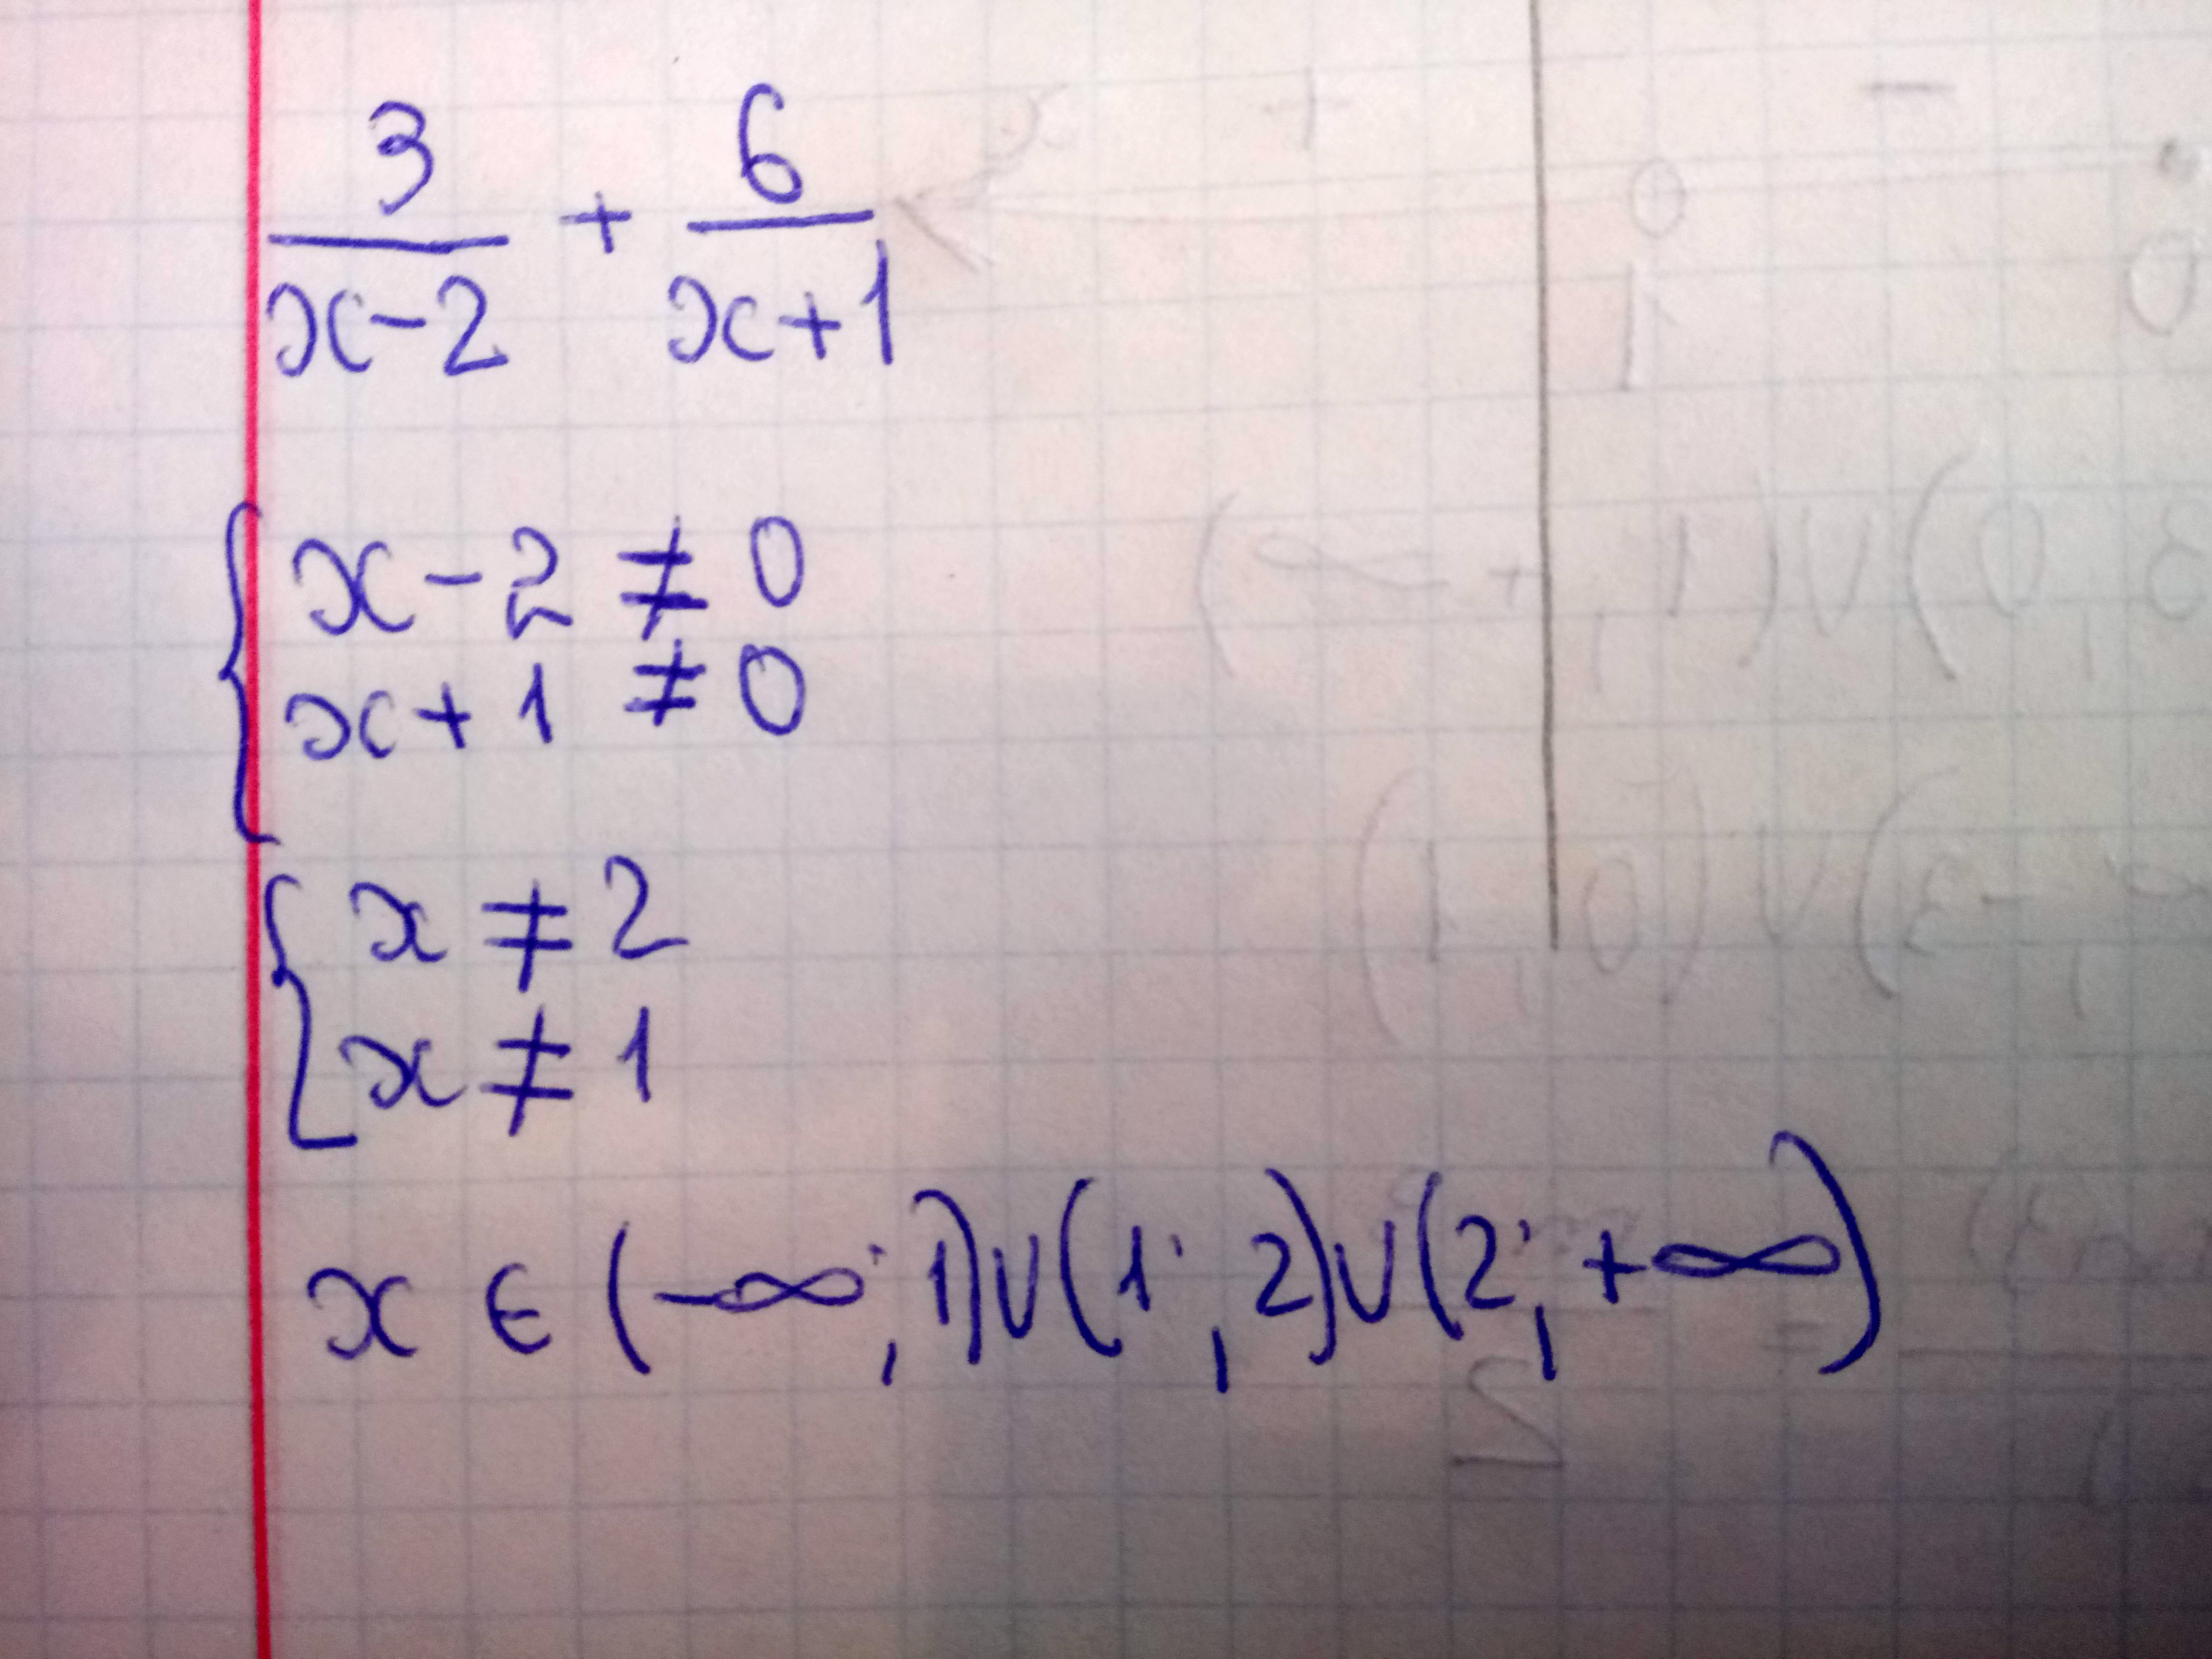 3/(x-2) + 6/(x+1)
{ x-2 ≠ 0
x+1 ≠ 0
{ x ≠ 2
x ≠ 1
x ∈ (-∞; 1)∪(1; 2)∪(2; +∞)